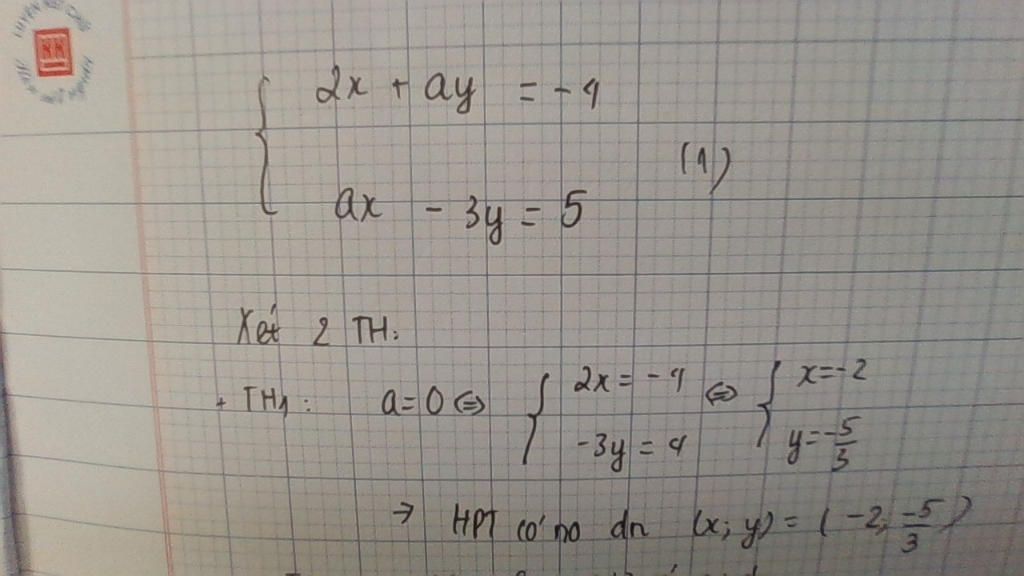 2x + ay = -4
ax - 3y = 5
(1)
Xét 2 TH:
+ TH1: a=0 <=> { 2x = -4 <=> { x=-2
-3y = 4 y=-5/3
→ HPT có no dn (x; y) = (-2; -5/3)